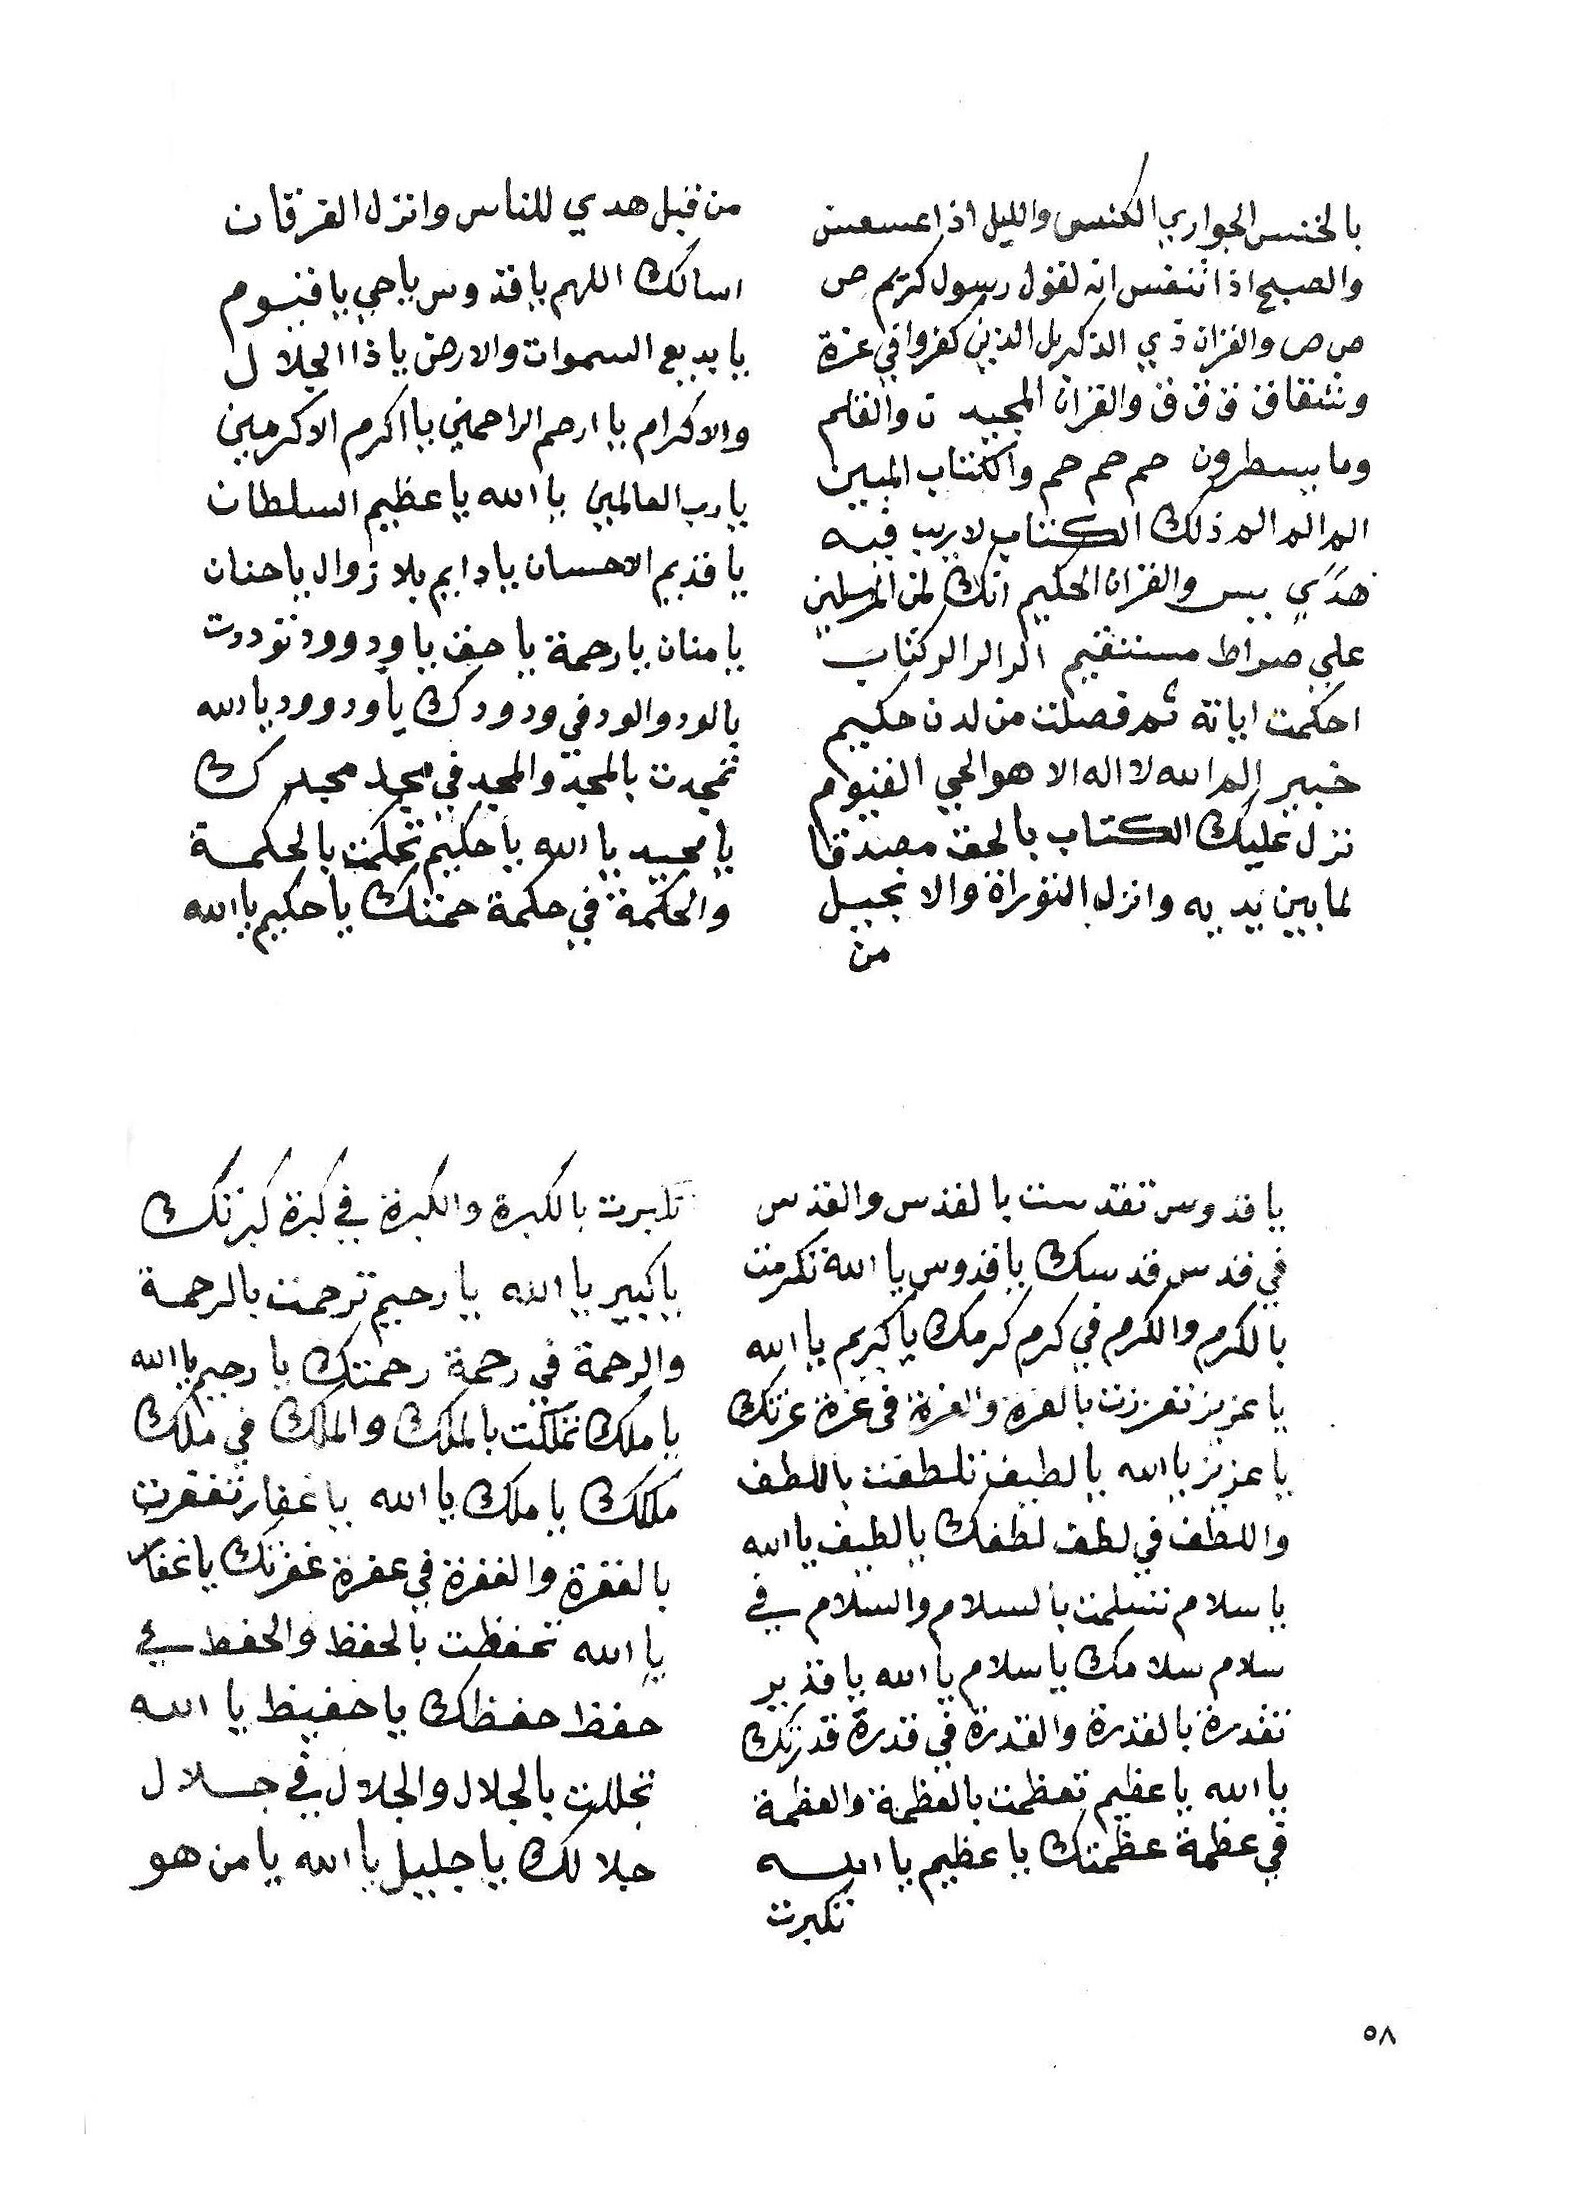 بالخنس الجواري الكنس والليل اذا عسعس
والصبح اذا تنفس انه لقول رسول كريم ص
ص ص والقران ذي الذكر بل الذين كفروا في عزة
وشقاق ق ق ق والقران المجيد ن والقلم
وما يسطرون حم حم حم والكتاب المبين
الم الم الم ذلك الكتاب لا ريب فيه
هدي يس والقران الحكيم انك لمن المرسلين
علي صراط مستقيم الر الر الر كتاب
احكمت اياته ثم فصلت من لدن حكيم
خبير الم الله لا اله الا هو الحي القيوم
نزل عليك الكتاب بالحق مصدقا
لما بين يديه وانزل التوراة والانجيل
من
من قبل هدي للناس وانزل الفرقان
اسالك اللهم يا قدوس يا حي يا قيوم
يا بديع السموات والارض يا ذا الجلال
والاكرام يا ارحم الراحمين يا اكرم الاكرمين
يا رب العالمين يا الله يا عظيم السلطان
يا قديم الاحسان يا دايم بلا زوال يا حنان
يا منان يا رحمة يا حق يا ودوود تودرت
بالود والود في ودودك يا ودوود يا الله
تمجدت بالمجد والمجد في مجد مجدك
يا مجيد يا الله يا حكيم تحكمت بالحكمة
والحكمة في حكمة حمتك يا حكيم يا الله
يا قدوس تقدست بالقدس والقدس
في قدس قدسك يا قدوس يا الله تكرمت
بالكرم والكرم في كرم كرمك يا كريم يا الله
يا عزيز تعززت بالعزة والعزة في عزة عزتك
يا عزيز يا الله يا لطيف تلطفت باللطف
واللطف في لطف لطفك يا لطيف يا الله
يا سلام تسلمت بالسلام والسلام في
سلام سلامك يا سلام يا الله يا قدير
تقدرة بالقدرة والقدرة في قدرة قدرتك
يا الله يا عظيم تعظمت بالعظمة والعظمة
في عظمة عظمتك يا عظيم يا الله
تكبرت
تكبرت بالكبرة والكبرة في كبرة كبرتك
يا كبير يا الله يا رحيم ترحمت بالرحمة
والرحمة في رحمة رحمتك يا رحيم يا الله
يا ملك تملكت بالملك والملك في ملك
ملكك يا ملك يا الله يا غفار تغفرت
بالغفرة والغفرة في غفرة غفرتك يا غفار
يا الله تحفظت بالحفظ والحفظ في
حفظ حفظك يا حفيظ يا الله
تجللت بالجلال والجلال في جلال
جلالك يا جليل يا الله يا من هو
٥٨